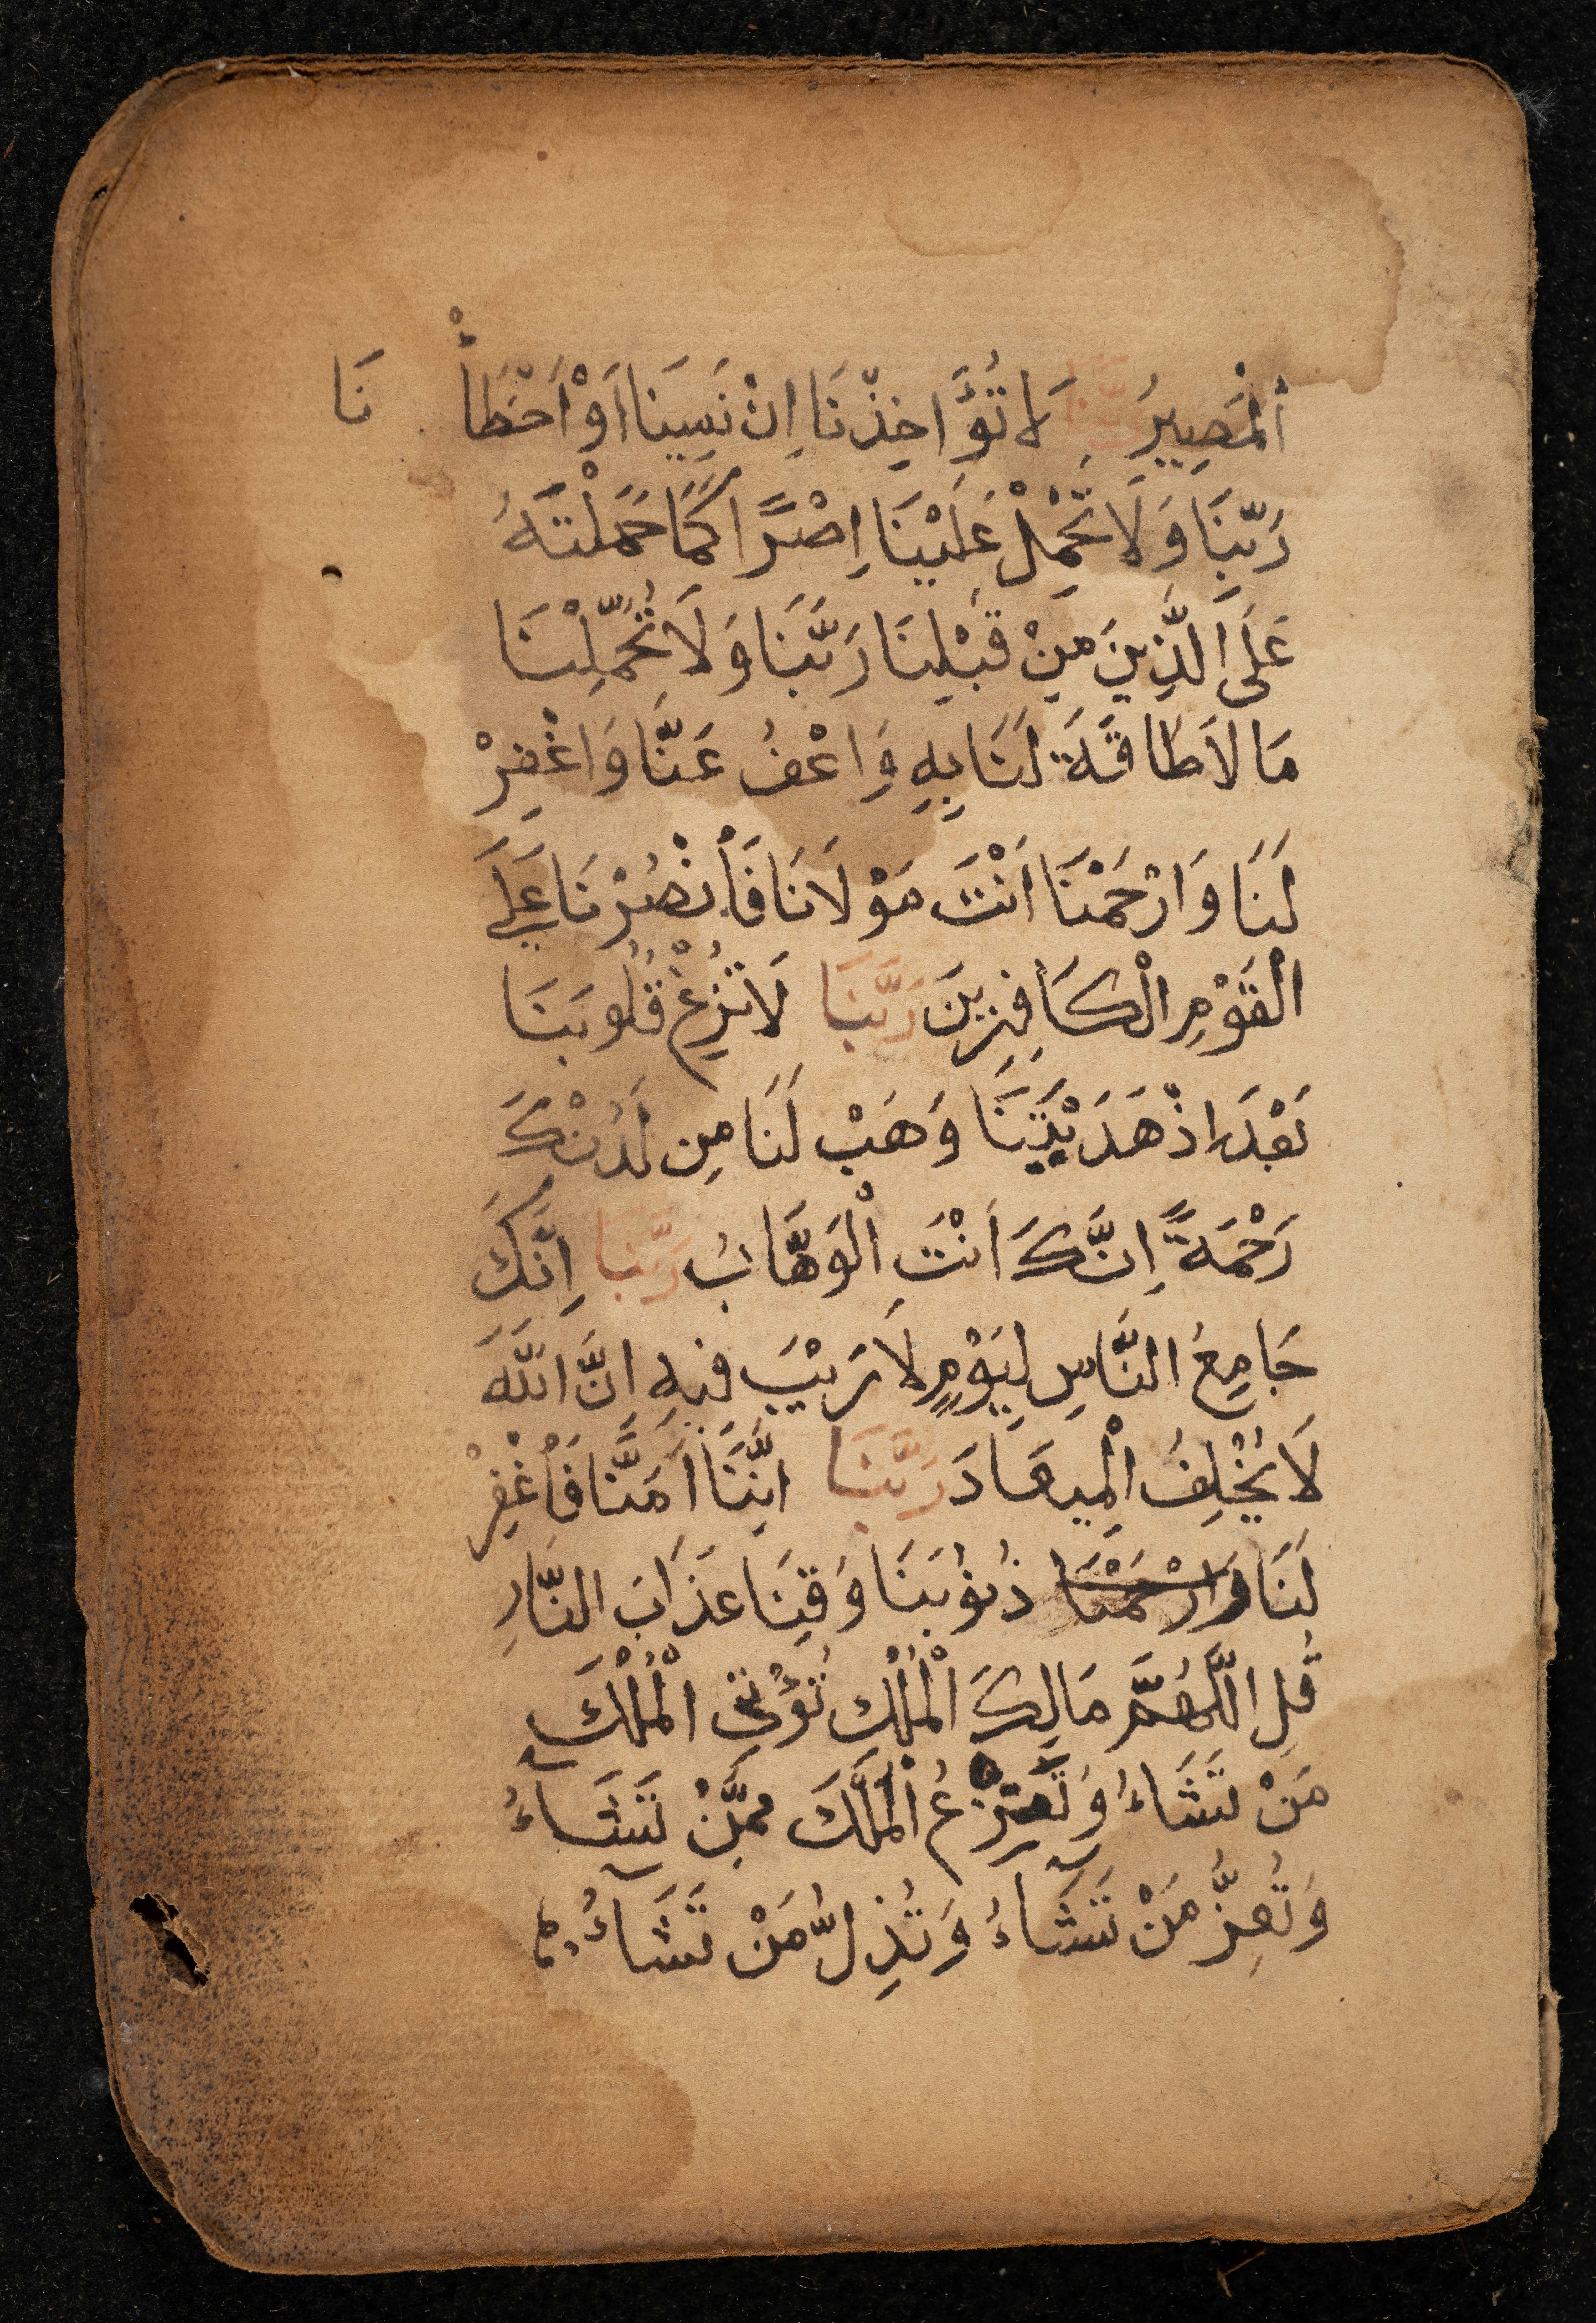 اَلْمَصِيرُ رَبَّنَا لَا تُؤَاخِذْنَا اِنْ نَسِينَا اَوْ اَخْطَأْ نَا
رَبَّنَا وَلَا تَحْمِلْ عَلَيْنَا اِصْرًا كَمَا حَمَلْتَهُ
عَلَى الَّذِينَ مِنْ قَبْلِنَا رَبَّنَا وَلَا تُحَمِّلْنَا
مَا لَا طَاقَةَ لَنَا بِهِ وَاعْفُ عَنَّا وَاغْفِرْ
لَنَا وَارْحَمْنَا اَنْتَ مَوْلَانَا فَأنْصُرْنَا عَلَى
الْقَوْمِ الْكَافِرِينَ رَبَّنَا لَا تُزِغْ قُلُوبَنَا
بَعْدَ اذْهَدَيْتَنَا وَهَبْ لَنَا مِن لَدُنْكَ
رَحْمَةً اِنَّكَ اَنْتَ الْوَهَّابُ رَبَّنَا اِنَّكَ
جَامِعُ النَّاسِ لِيَوْمٍ لَا رَيْبَ فِيهِ اِنَّ اللَّهَ
لَا يُخْلِفُ الْمِيعَادَ رَبَّنَا اِنَّنَا اَمَنَّا فَأغْفِرْ
لَنَا وَارْحَمْنَا ذُنُوبَنَا وَقِنَا عَذَابَ النَّارِ
قُلِ اللَّهُمَّ مَالِكَ الْمُلْكِ تُؤْتِي الْمُلْكَ
مَنْ تَشَاءُ وَتَنْزِعُ الْمُلْكَ مِمَّنْ تَشَاءُ
وَتُعِزُّ مَنْ تَشَاءُ وَتُذِلُّ مَنْ تَشَاءُ